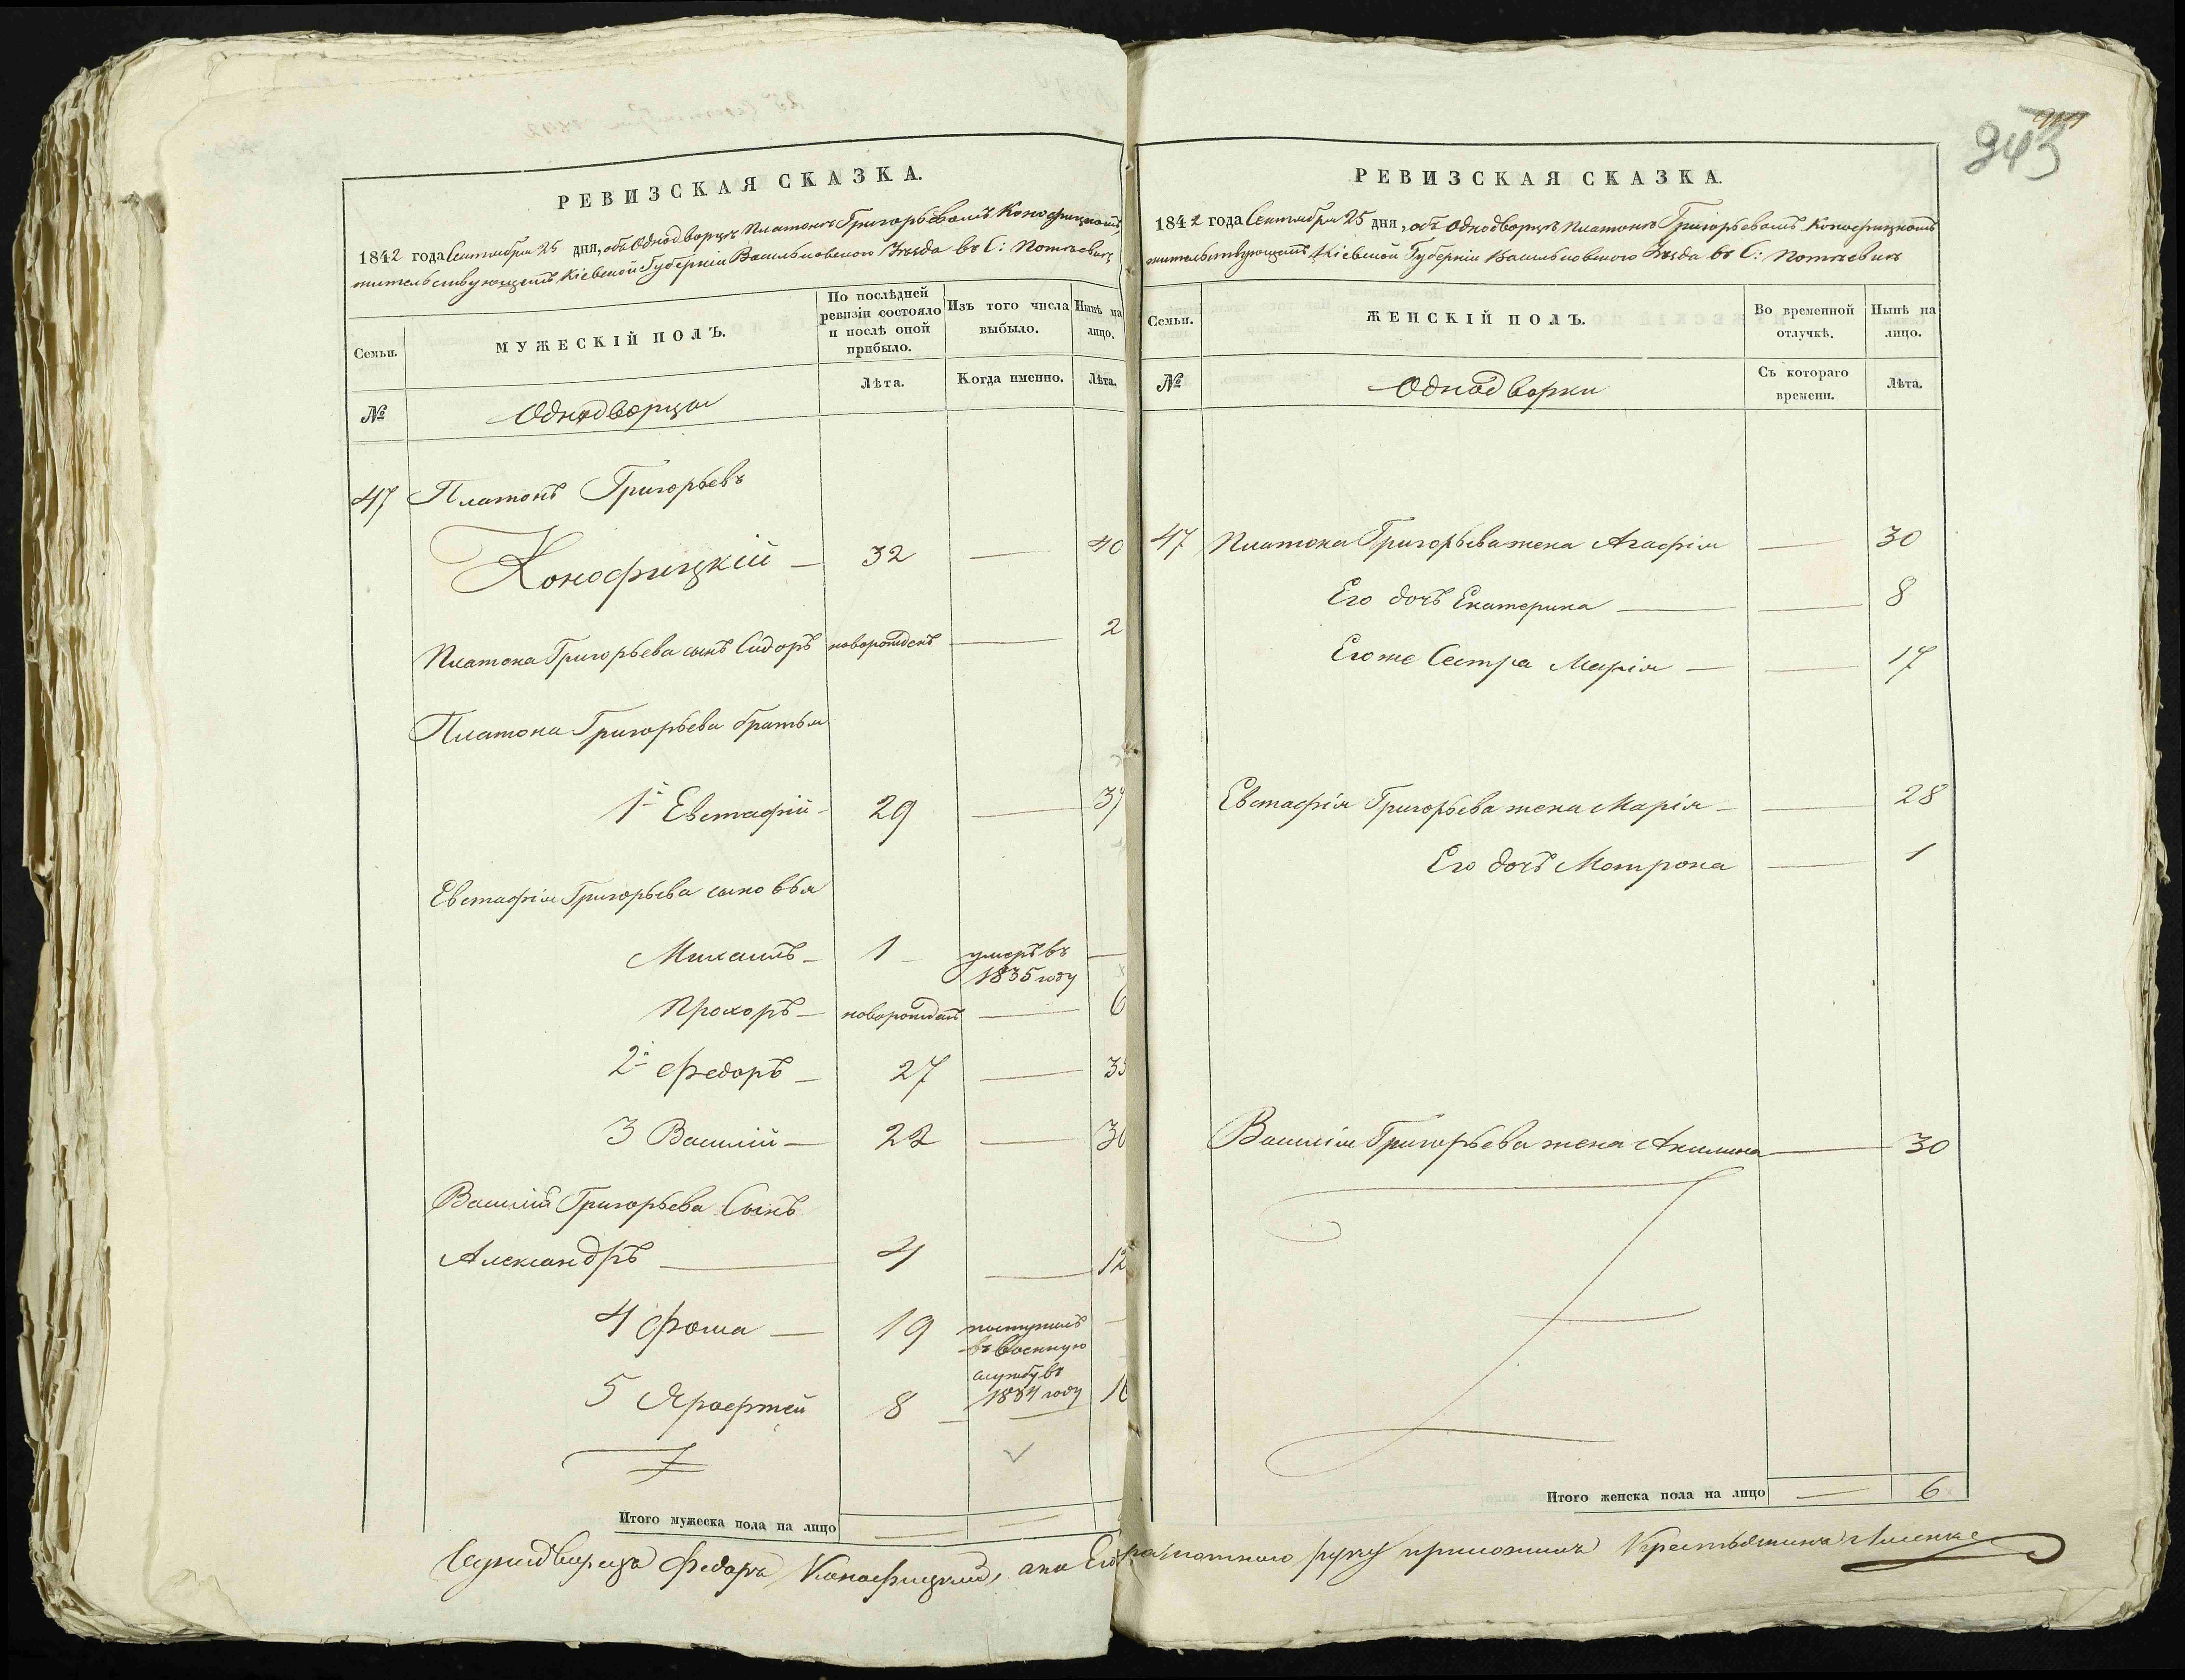 943
РЕВИЗСКАЯ СКАЗКА.
1842 года Сентября 25 дня, объ Однодворцѣ Платонѣ Григорьевомъ Конофицкомъ,
жительствующемъ Кіевской Губерніи Васильковского Уѣзда въ С: Потіевкѣ
Семьи.
МУЖЕСКІЙ ПОЛЪ.
По послѣдней ревизіи состояло и послѣ оной прибыло.
Изъ того числа выбыло.
Нынѣ на лицо.
№
Однодворцы
Лѣта.
Когда именно.
Лѣта.
47 Платонъ Григорьевъ
Конофицкій — 32 — 40
Платона Григорьева сынъ Сидоръ новорожденъ — 2
Платона Григорьева братья
1й Евстафій — 29 — 37
Евстафія Григорьева сыновья
Михаилъ — 1 — умеръ въ —
1835 году
Прохоръ — новорожденъ — 6
2й Федоръ — 27 — 35
3 Василій — 22 — 30
Василія Григорьева Сынъ
Александръ — 4 — 12
4 Фома — 19 поступилъ —
въ военную
службу въ
1834 году
5 Ярофтей 8 — — 16
Итого мужеска пола на лицо — —
РЕВИЗСКАЯ СКАЗКА.
1842 года Сентября 25 дня, объ Однодворцѣ Платонѣ Григорьевомъ Конофицкомъ
жительствующемъ Кіевской Губерніи Васильковского Уѣзда въ С: Потіевкѣ
Семьи.
ЖЕНСКІЙ ПОЛЪ.
Во временной отлучкѣ.
Нынѣ на лицо.
№
Однодворки
Съ котораго времени.
Лѣта.
47 Платона Григорьева жена Агафія — 30
Его дочь Екатерина — — 8
Его же Сестра Марія — — 17
Евстафія Григорьева жена Марія — — 28
Его дочь Матрона — 1
Василія Григорьева жена Акилина — 30
Итого женска пола на лицо — 6
Федора Конофицкій, а по Его руку приложилъ